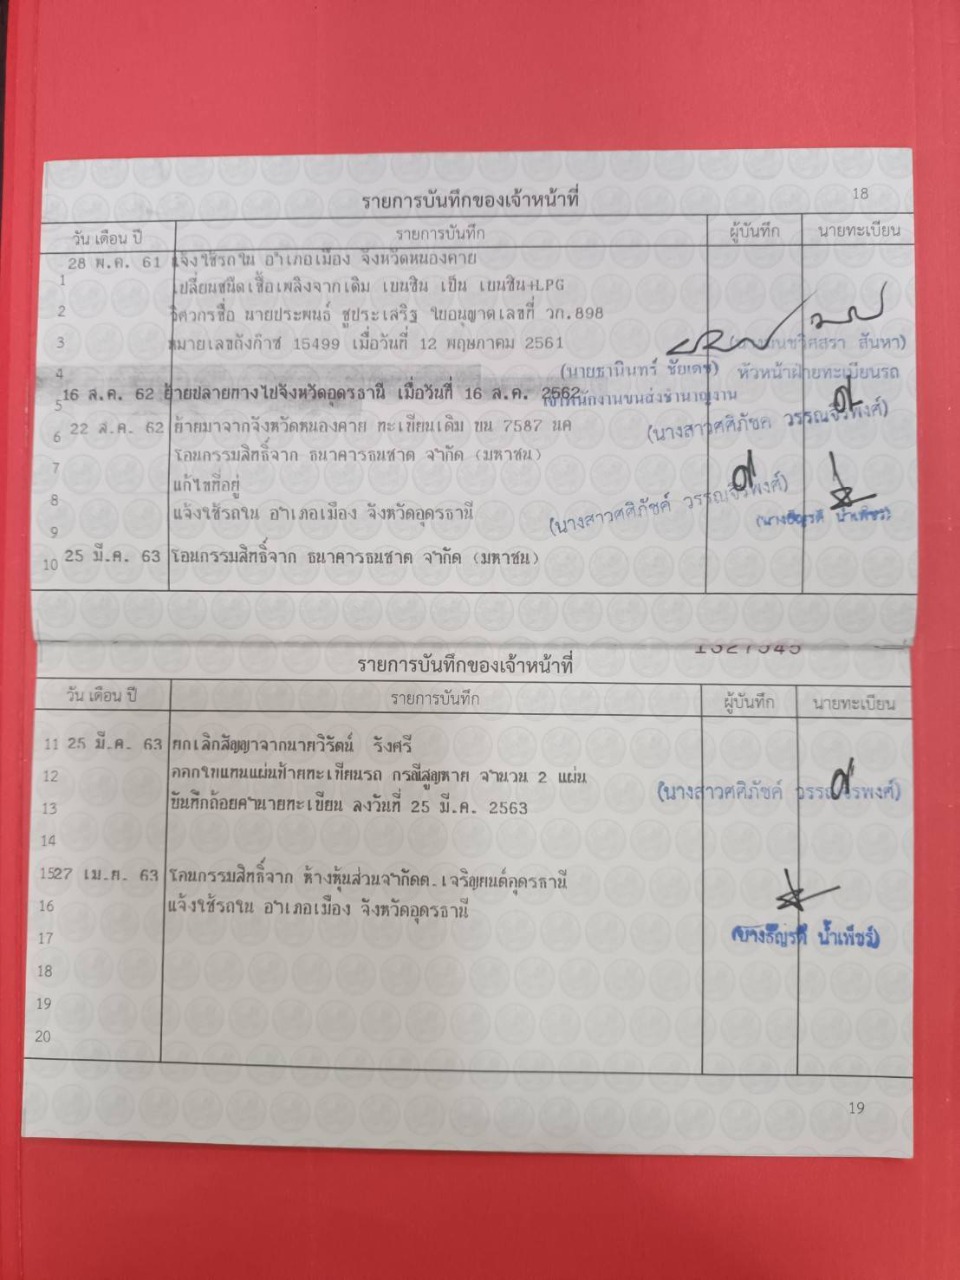 18
รายการบันทึกของเจ้าหน้าที่
วัน เดือน ปี รายการบันทึก ผู้บันทึก นายทะเบียน
28 พ.ค. 61 แจ้งใช้รถใน อำเภอเมือง จังหวัดหนองคาย
1 เปลี่ยนชนิดเชื้อเพลิงจากเดิม เบนซิน เป็น เบนซิน+LPG
2 วิศวกรชื่อ นายประพนธ์ ชูประเสริฐ ใบอนุญาตเลขที่ วก.898
3 หมายเลขถังก๊าซ 15499 เมื่อวันที่ 12 พฤษภาคม 2561 สันหา)
4 (นายธานินทร์ ชัยเดช) หัวหน้าฝ่ายทะเบียนรถ
5 16 ส.ค. 62 ย้ายปลายทางไปจังหวัดอุดรธานี เมื่อวันที่ 16 ส.ค. 2562 เจ้าพนักงานขนส่งชำนาญงาน
6 22 ส.ค. 62 ย้ายมาจากจังหวัดหนองคาย ทะเบียนเดิม บน 7587 นค (นางสาวศศิภัชค์ วรรณจิรพงศ์)
7 โอนกรรมสิทธิ์จาก ธนาคารธนชาต จำกัด (มหาชน)
แก้ไขที่อยู่
8 แจ้งใช้รถใน อำเภอเมือง จังหวัดอุดรธานี (นางสาวศศิภัชค์ วรรณจิรพงศ์) (นางธัญรดี น้ำเพ็ชร)
9
10 25 มี.ค. 63 โอนกรรมสิทธิ์จาก ธนาคารธนชาต จำกัด (มหาชน)
1327545
รายการบันทึกของเจ้าหน้าที่
วัน เดือน ปี รายการบันทึก ผู้บันทึก นายทะเบียน
11 25 มี.ค. 63 ยกเลิกสัญญาจากนายวิรัตน์ รังศรี
12 ออกใบแทนแผ่นป้ายทะเบียนรถ กรณีสูญหาย จำนวน 2 แผ่น
13 บันทึกถ้อยคำนายทะเบียน ลงวันที่ 25 มี.ค. 2563 (นางสาวศศิภัชค์ วรรณจิรพงศ์)
14
15 27 เม.ย. 63 โอนกรรมสิทธิ์จาก ห้างหุ้นส่วนจำกัดต.เจริญยนต์อุดรธานี
16 แจ้งใช้รถใน อำเภอเมือง จังหวัดอุดรธานี
17 (นางธัญรดี น้ำเพ็ชร)
18
19
20
19